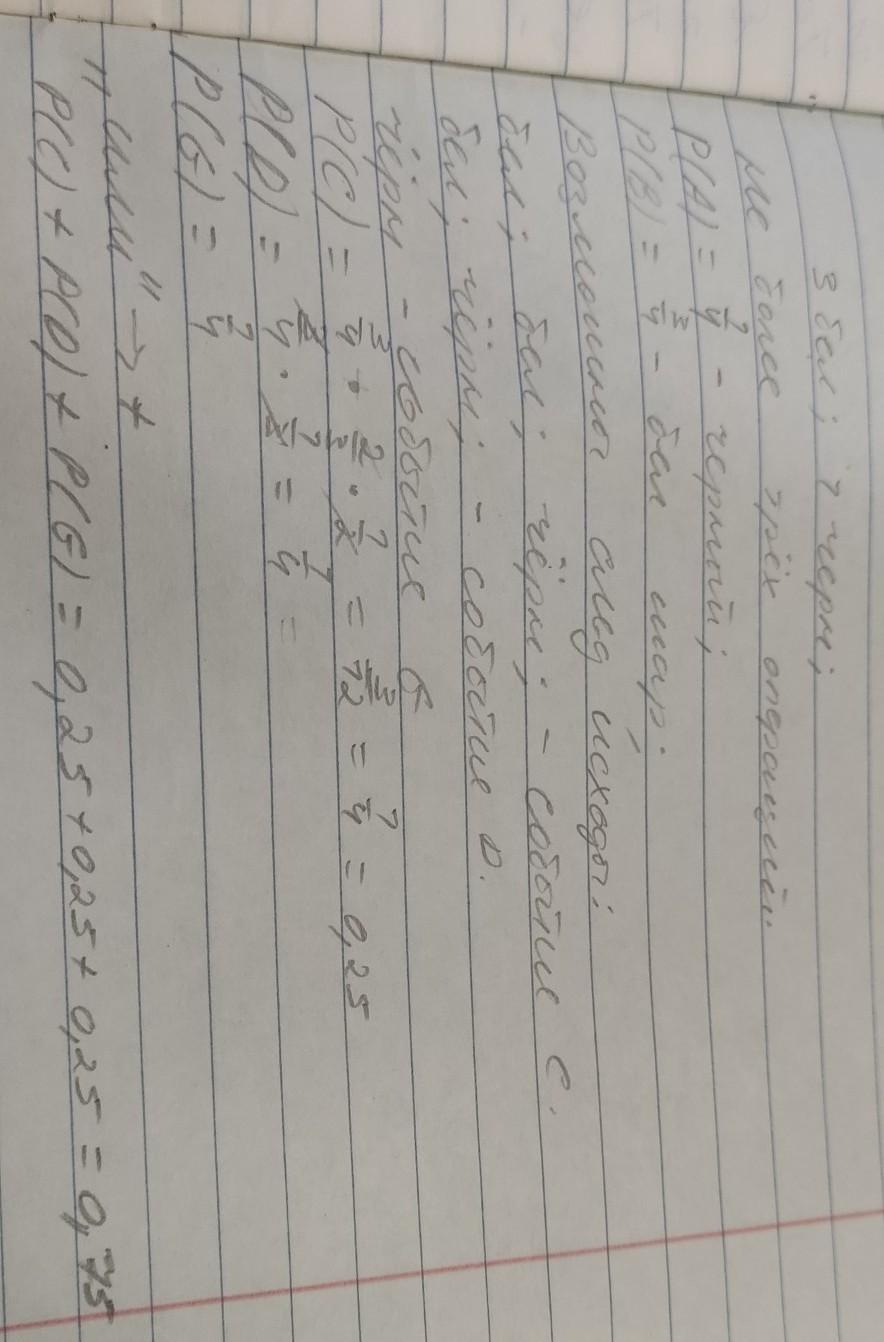 3 бел; 1 черн;
Не более трёх операций.
P(A) = 1/4 - черный;
P(B) = 3/4 - бел шар.
Возможны след исходы:
бел; бел; чёрн; - событие C.
бел; чёрн; - событие D.
чёрн - событие G
P(C) = 3/4 · 2/3 · 1/2 = 3/12 = 1/4 = 0,25
P(D) = 3/4 · 1/3 = 1/4 =
P(G) = 1/4
"или" → +
P(C) + P(D) + P(G) = 0,25 + 0,25 + 0,25 = 0,75